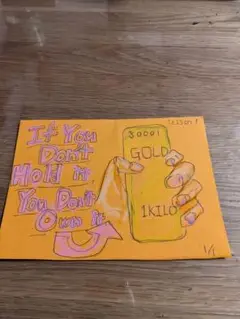 If You
Don't
Hold it,
You Don't
Own it
GOLD
1KILO
1/1